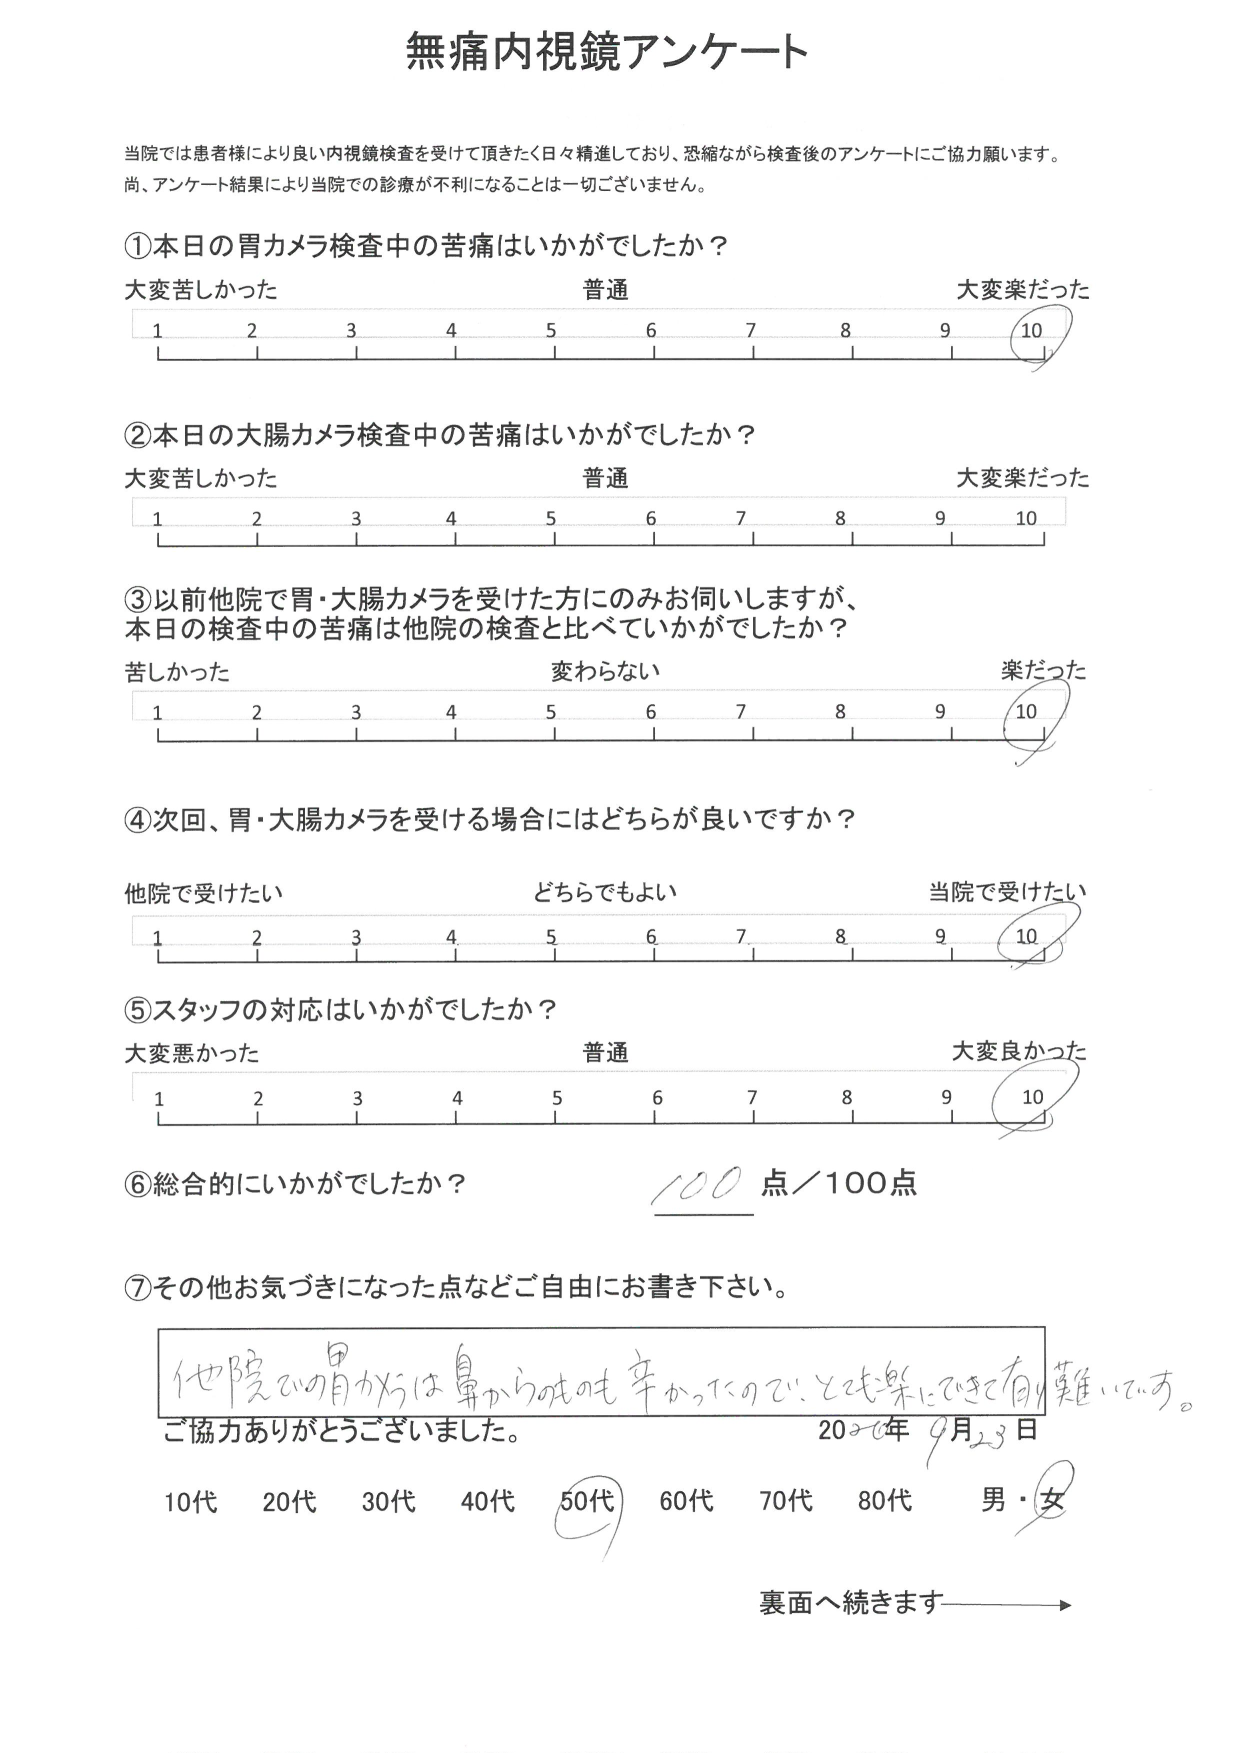 無痛内視鏡アンケート
当院では患者様により良い内視鏡検査を受けて頂きたく日々精進しており、恐縮ながら検査後のアンケートにご協力願います。
尚、アンケート結果により当院での診療が不利になることは一切ございません。
①本日の胃カメラ検査中の苦痛はいかがでしたか？
大変苦しかった 普通 大変楽だった
1 2 3 4 5 6 7 8 9 10
②本日の大腸カメラ検査中の苦痛はいかがでしたか？
大変苦しかった 普通 大変楽だった
1 2 3 4 5 6 7 8 9 10
③以前他院で胃・大腸カメラを受けた方にのみお伺いしますが、
本日の検査中の苦痛は他院の検査と比べていかがでしたか？
苦しかった 変わらない 楽だった
1 2 3 4 5 6 7 8 9 10
④次回、胃・大腸カメラを受ける場合にはどちらが良いですか？
他院で受けたい どちらでもよい 当院で受けたい
1 2 3 4 5 6 7 8 9 10
⑤スタッフの対応はいかがでしたか？
大変悪かった 普通 大変良かった
1 2 3 4 5 6 7 8 9 10
⑥総合的にいかがでしたか？ 100 点／100点
⑦その他お気づきになった点などご自由にお書き下さい。
他院での胃カメラは鼻からのものも辛かったので、とても楽にできて有り難いです。
ご協力ありがとうございました。 20 年 9月23日
10代 20代 30代 40代 50代 60代 70代 80代 男・女
裏面へ続きます